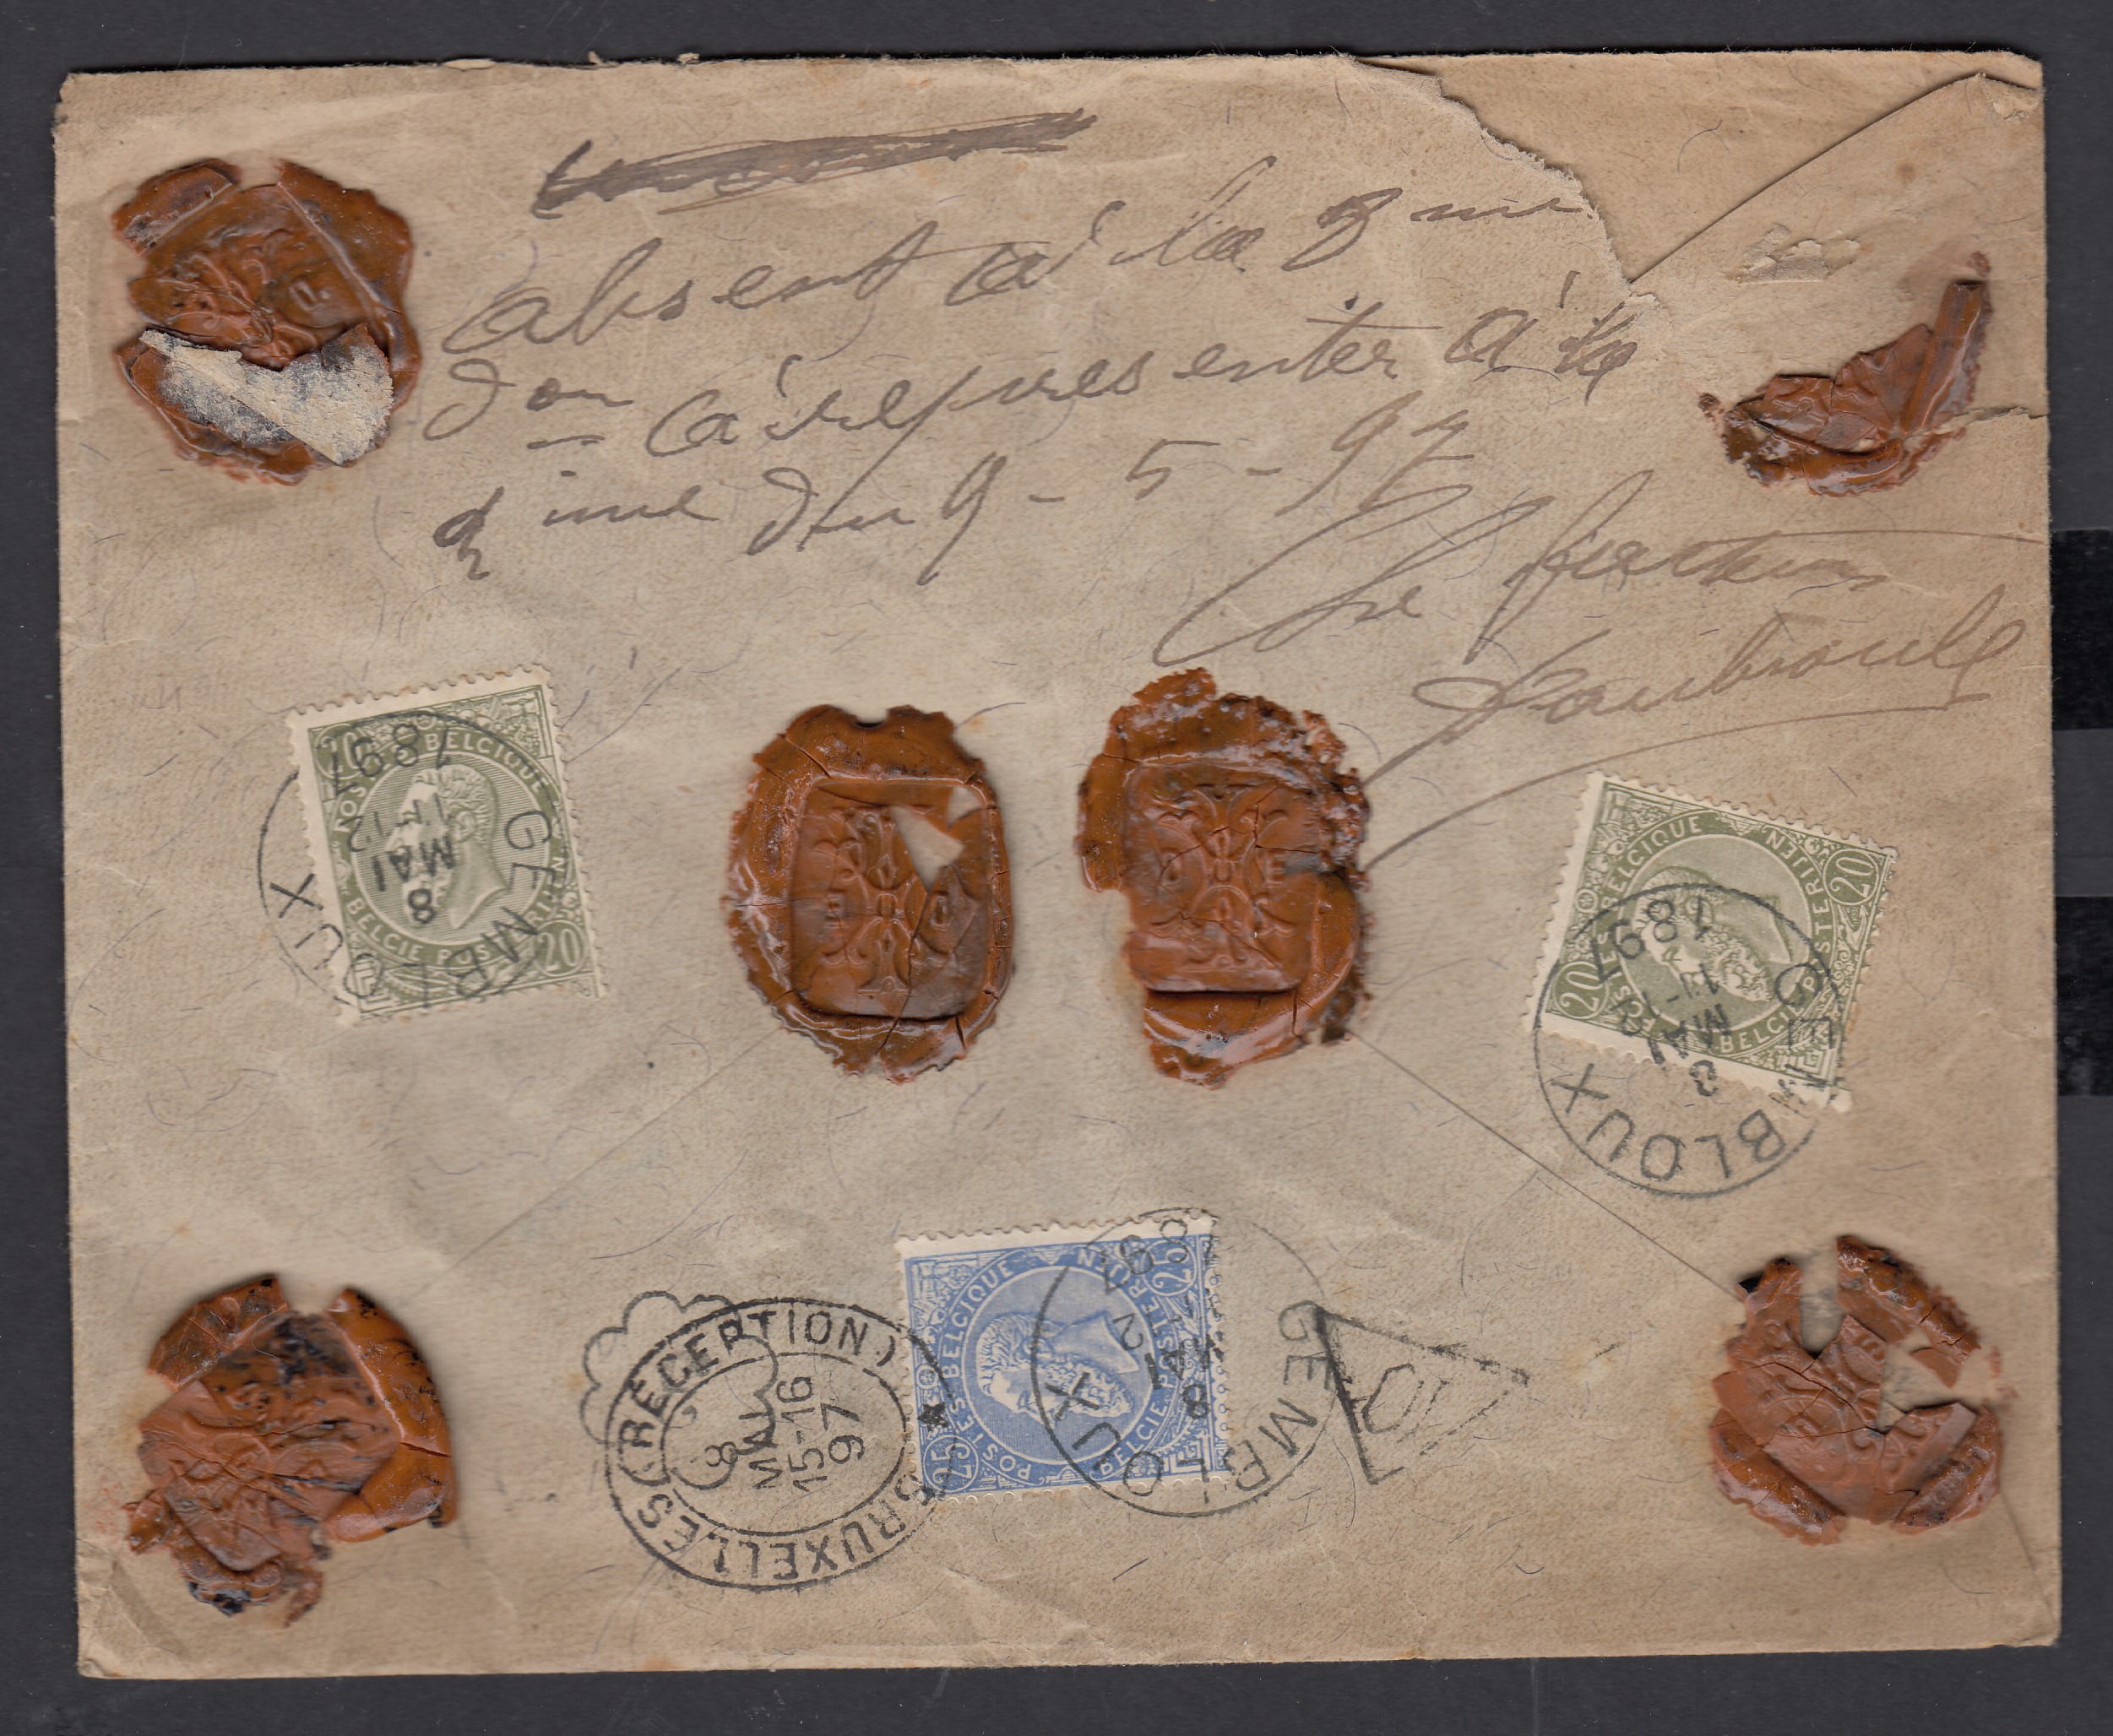 absent à la 3 me
don à représenter à la
2 ime du 9 - 5 - 97
Le facteur
20 POSTES BELGIQUE
BELGIE POSTERIJEN 20
GEMBLOUX
8
MAI
11-12
1897
20 POSTES BELGIQUE
BELGIE POSTERIJEN 20
GEMBLOUX
8
MAI
11-12
1897
25 POSTES BELGIQUE
BELGIE POSTERIJEN 25
GEMBLOUX
8
MAI
11-12
1897
BRUXELLES (RECEPTION)
8
MAI
15-16
97